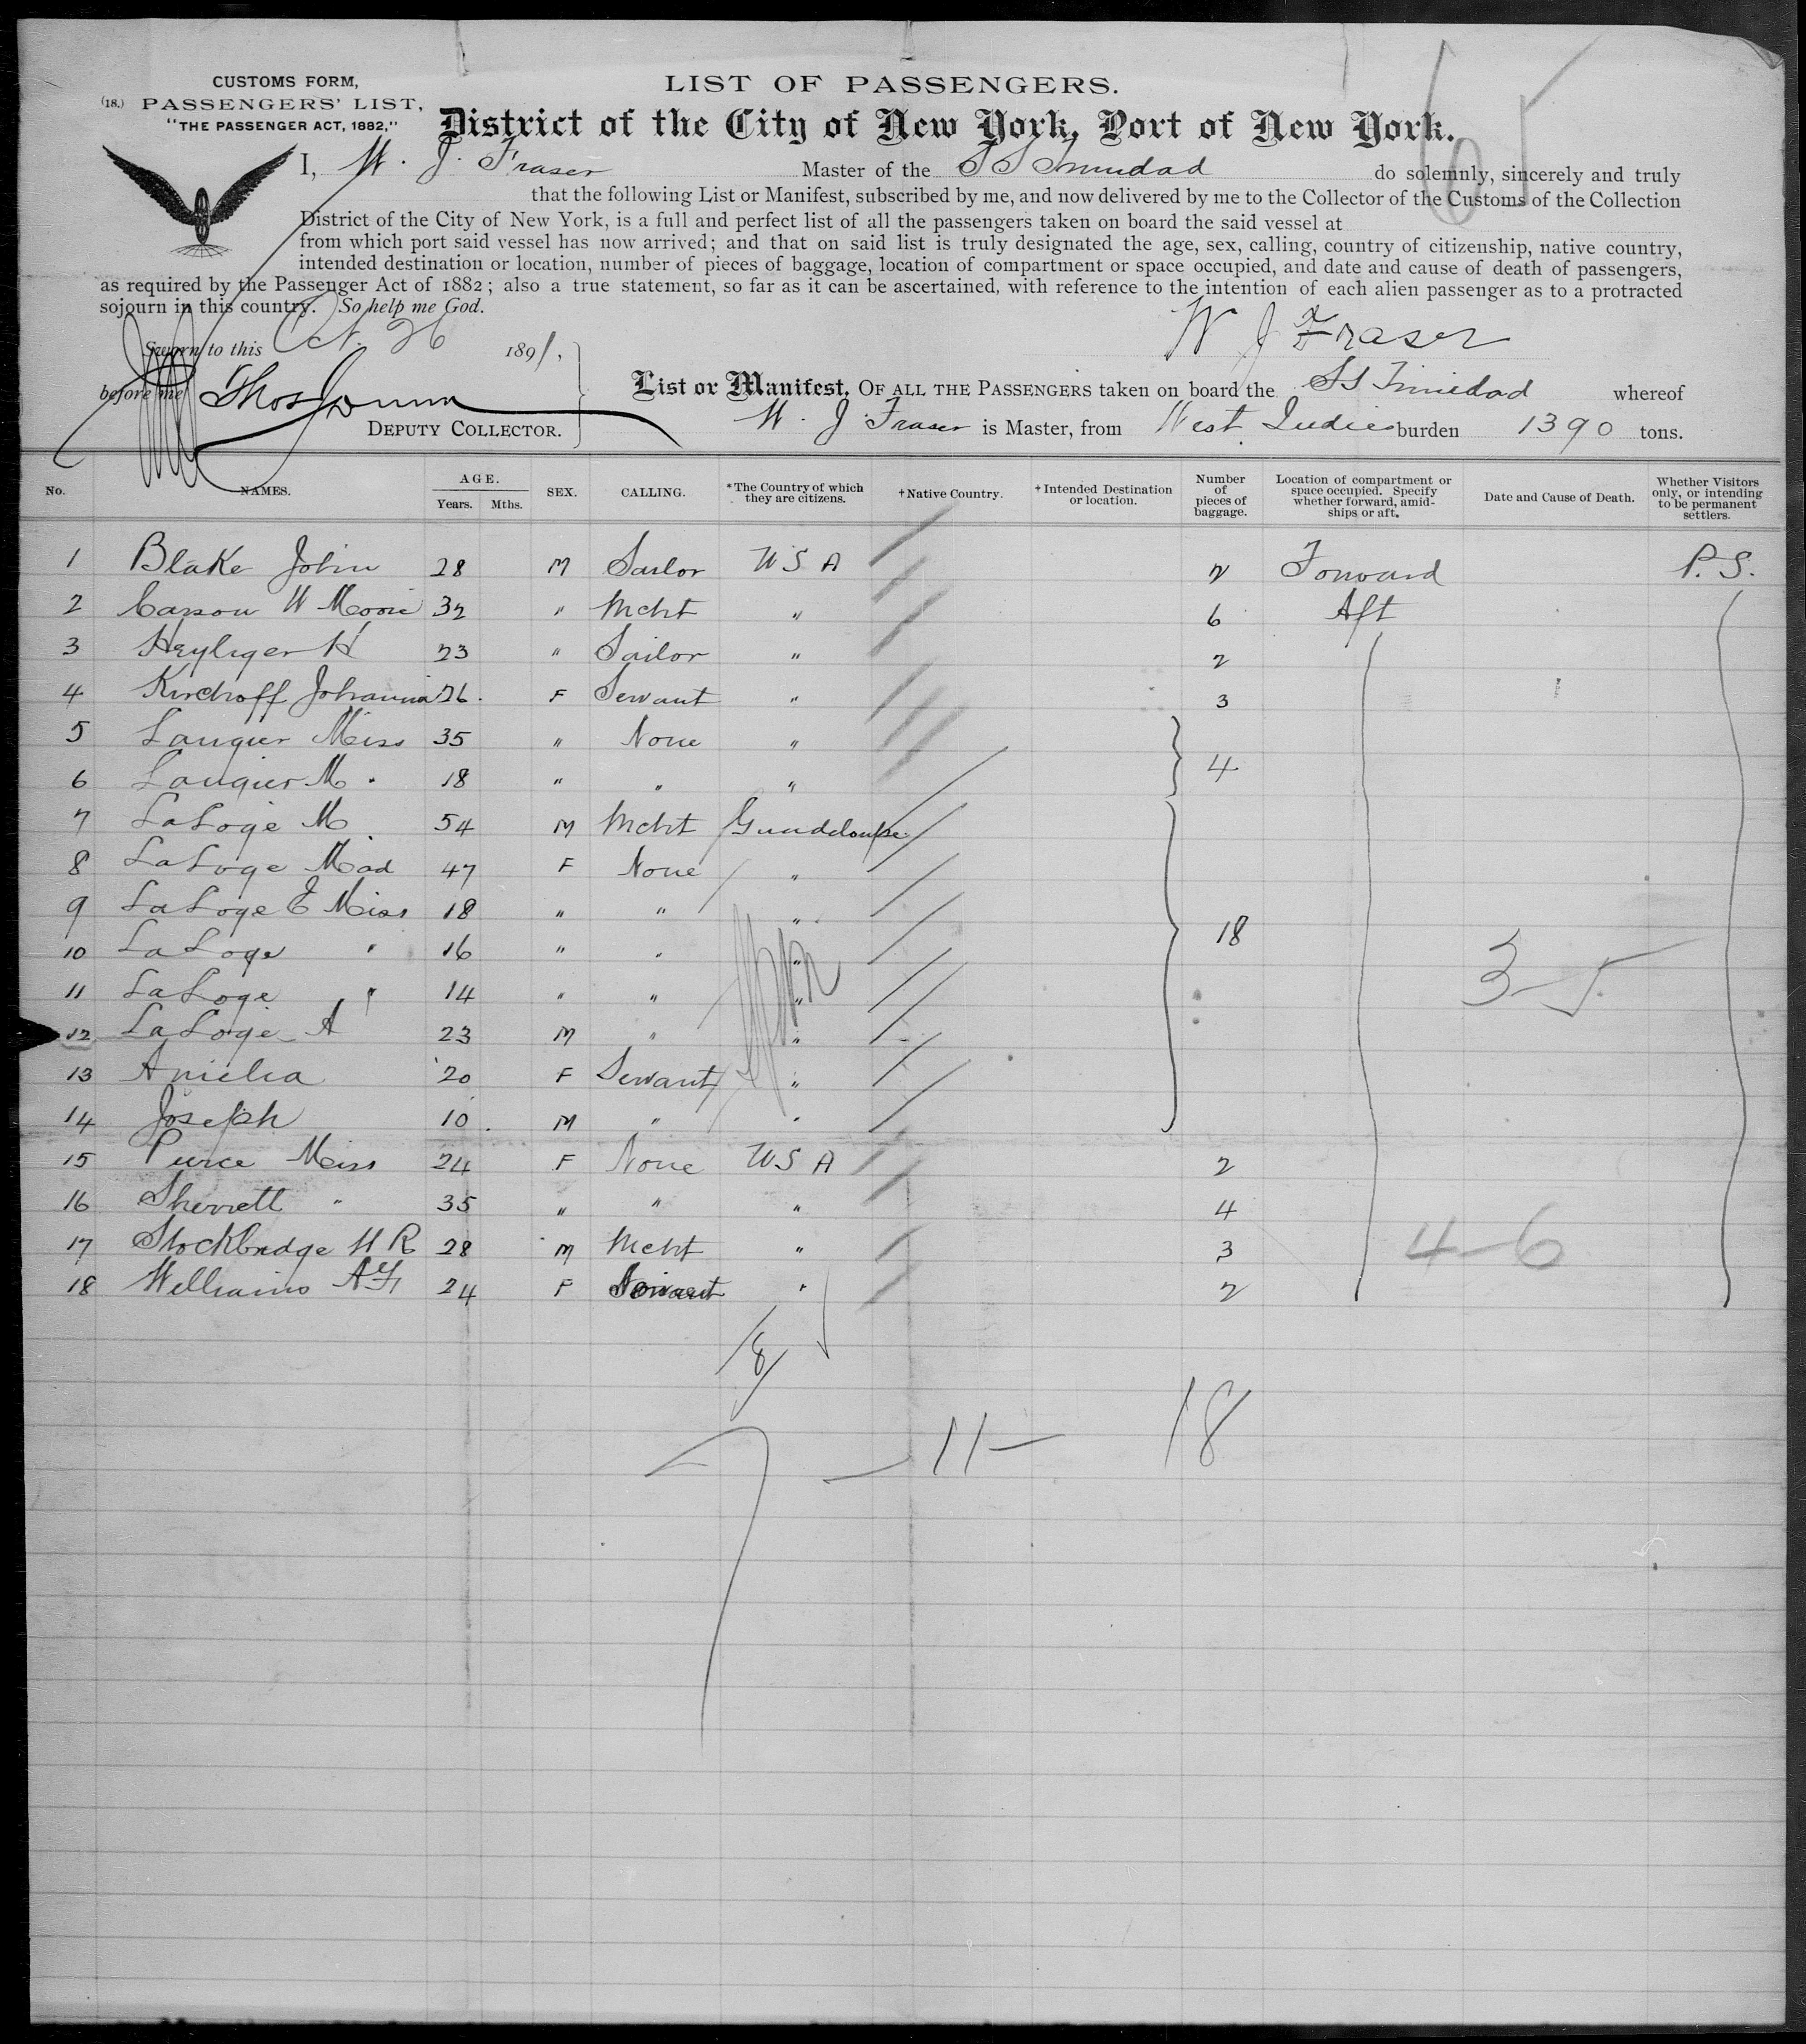 CUSTOMS FORM,
(18.) PASSENGERS' LIST,
"THE PASSENGER ACT, 1882,"
LIST OF PASSENGERS.
District of the City of New York, Port of New York.
I, W. J. Fraser Master of the SS Trinidad do solemnly, sincerely and truly
that the following List or Manifest, subscribed by me, and now delivered by me to the Collector of the Customs of the Collection
District of the City of New York, is a full and perfect list of all the passengers taken on board the said vessel at
from which port said vessel has now arrived; and that on said list is truly designated the age, sex, calling, country of citizenship, native country,
intended destination or location, number of pieces of baggage, location of compartment or space occupied, and date and cause of death of passengers,
as required by the Passenger Act of 1882; also a true statement, so far as it can be ascertained, with reference to the intention of each alien passenger as to a protracted
sojourn in this country. So help me God.
W J Fraser
Sworn to this Oct. 26 1891,
before me Thos
DEPUTY COLLECTOR.
List or Manifest, OF ALL THE PASSENGERS taken on board the SS Trinidad whereof
W. J. Fraser is Master, from West Indies burden 1390 tons.
No. NAMES. AGE. Years. Mths. SEX. CALLING. *The Country of which they are citizens. †Native Country. †Intended Destination or location. Number of pieces of baggage. Location of compartment or space occupied. Specify whether forward, amidships or aft. Date and Cause of Death. Whether Visitors only, or intending to be permanent settlers.
1 Blake John 28 M Sailor U S A 2 Forward P. S.
2 Carson W Moore 32 " Mcht " 6 Aft
3 Heyliger H 23 " Sailor " 2
4 Kirchoff Johanna 26. F Servant " 3
5 Laugier Miss 35 " None "
6 Laugier M. 18 " " " 4
7 LaLoge M 54 M Mcht Guadeloupe
8 LaLoge Mad 47 F None "
9 LaLoge E Miss 18 " " "
10 LaLoge " 16 " " " 18
11 LaLoge " 14 " " "
12 LaLoge A 23 M " "
13 Amelia 20 F Servant "
14 Joseph 10. M " "
15 Pierce Miss 24 F None U S A 2
16 Sherrett " 35 " " " 4
17 Stockbridge H R 28 M Mcht " 3
18 Williams A 24 F Servant " 2
3-5
4-6
8
7 - 11 - 18